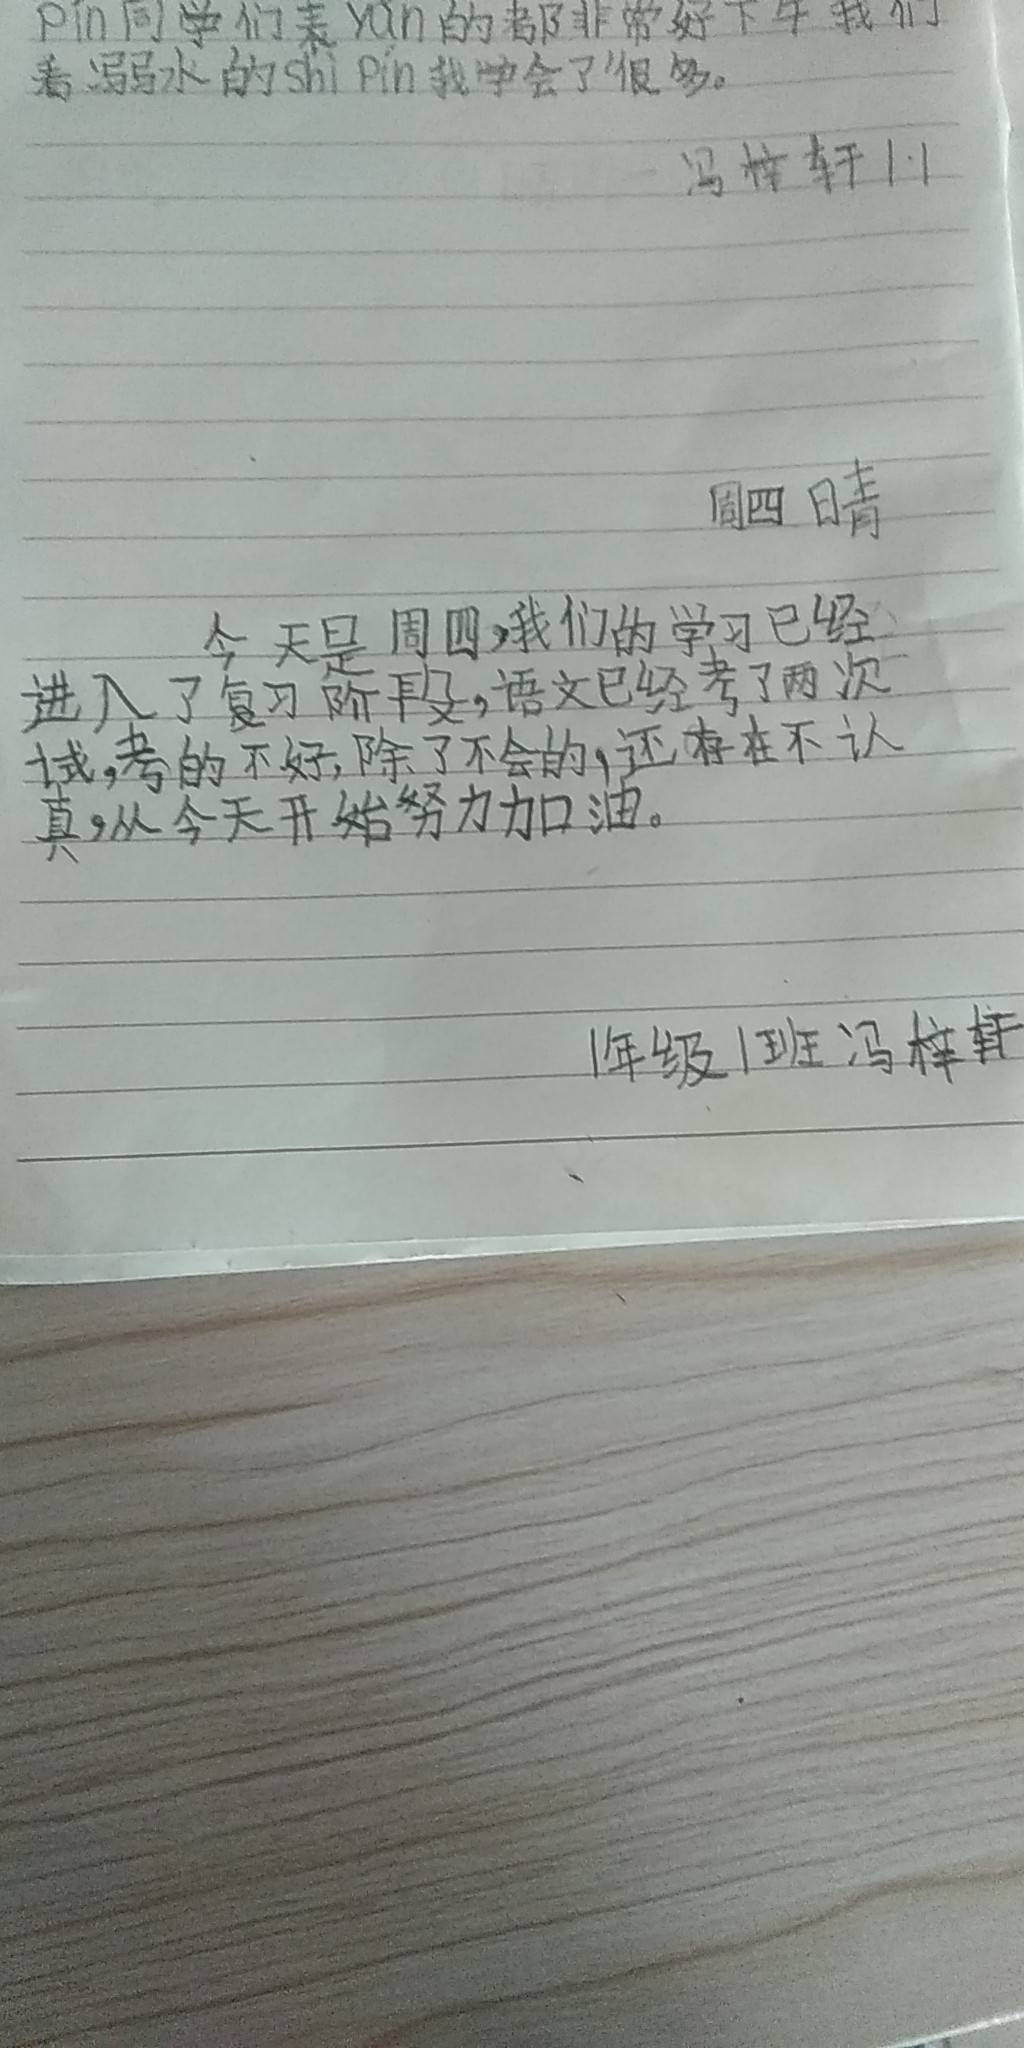 pin同学们表yan的都非常好下午我们
看溺水的shi pin我学会了很多。
冯梓轩1.1
周四 晴
今天是周四,我们的学习已经
进入了复习阶段,语文已经考了两次
试,考的不好,除了不会的,还存在不认
真,从今天开始努力加油。
1年级1班冯梓轩